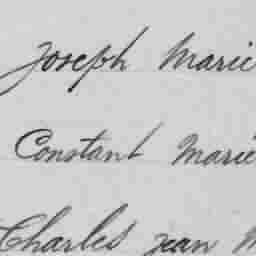 Joseph Marie
Constant Marie
Charles Jean